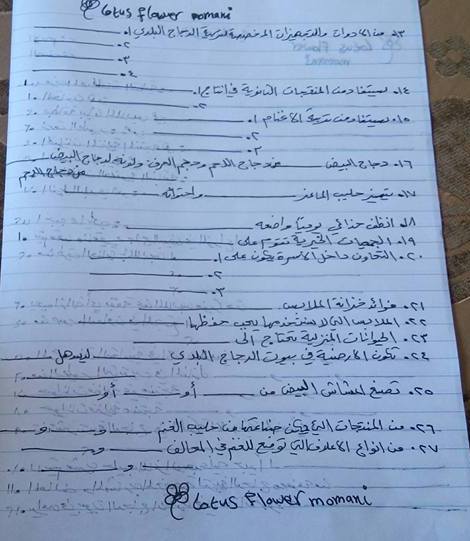 Lotus flower momani
١٣. من الأدوات والتجهيزات المخصصة لتربية الدجاج البلدي ١.
٢.
٣.
٤.
١٤. يستفاد من المنتجات الثانوية في إنتاج ١.
٢.
١٥. يستفاد من تربية الأغنام ١.
٢.
٣.
١٦. دجاج البيض عن دجاج اللحم وحجم العرف ولونه لدجاج البيض
عن دجاج اللحم
١٧. يتميز حليب الماعز واحتوائه
١٨. أنظف حذائي يوميًا واضعه
١٩. الجمعيات الخيرية تقوم على
٢٠. التعاون داخل الأسرة يكون على ١.
٢.
٣.
٢١. فوائد خزانة الملابس
٢٢. الملابس التي لا نستخدمها يجب حفظها
٢٣. الحيوانات المنزلية تحتاج الى
٢٤. تكون الأرضية في بيوت الدجاج البلدي ليسهل
٢٥. تصنع اعشاش البيض من أو أو
٢٦. من المنتجات التي يمكن صناعتها من حليب الغنم و و
٢٧. من انواع الأعلاف التي توضع للغنم في المعالف و
و
Lotus flower momani